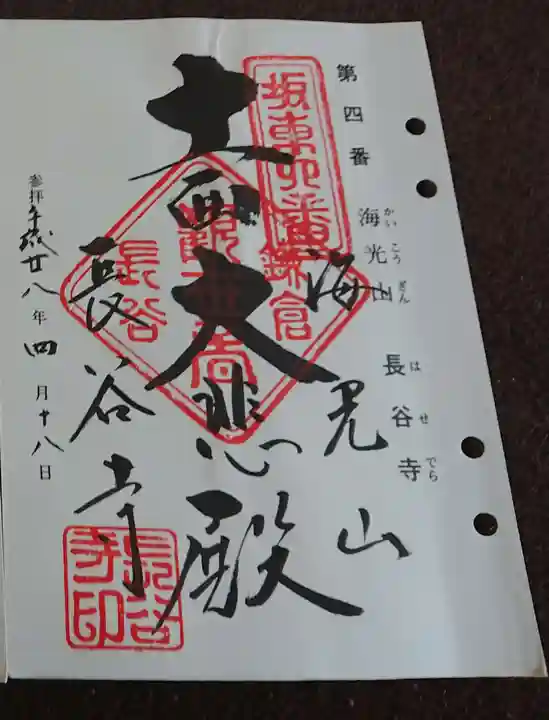 第四番 海光山 長谷寺
かいこうざん はせでら
坂東四番
鎌倉
海光山
十一面大悲殿
長谷
長谷寺
長谷寺印
参拝平成廿八年四月十八日